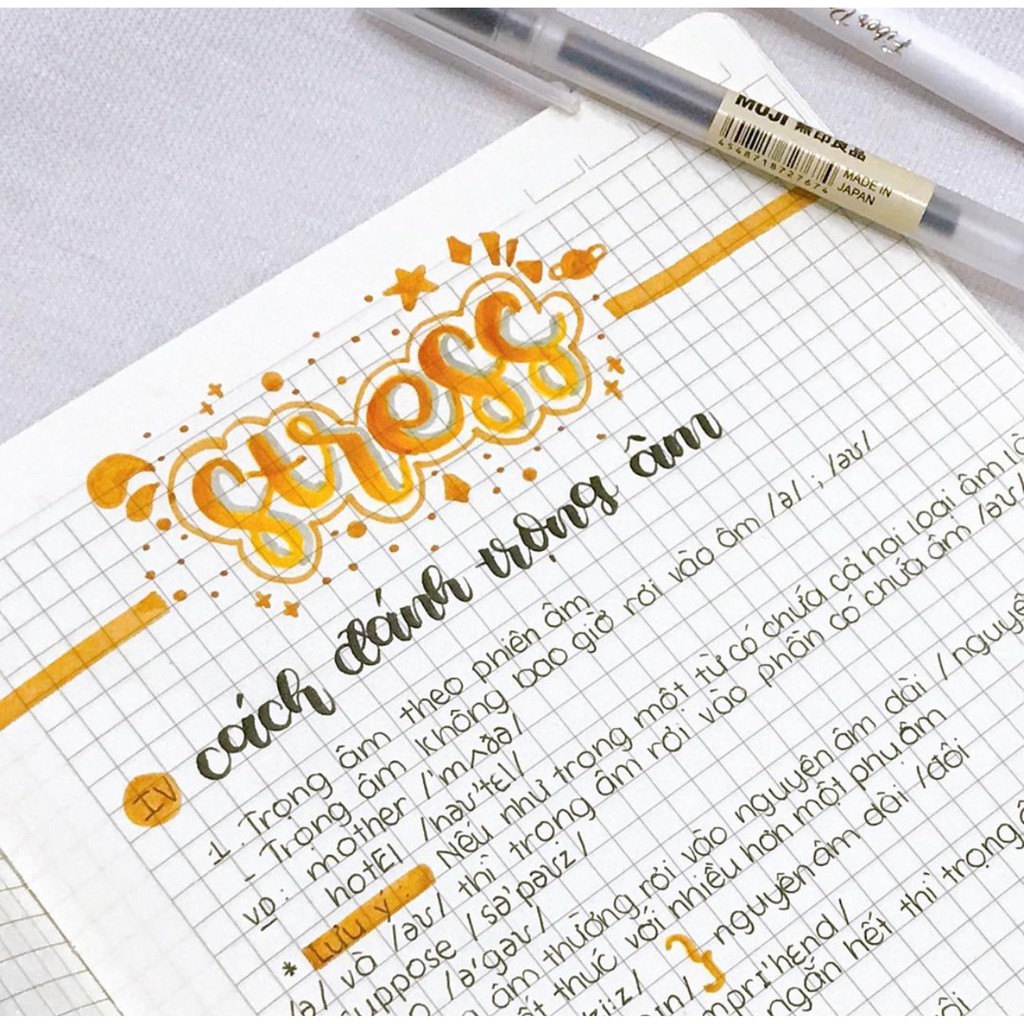 Fiber
MUJI 無印良品
4548718727674
MADE IN
JAPAN
stress
IV cách đánh trọng âm
1. Trọng âm theo phiên âm
- Trọng âm không bao giờ rơi vào âm /ə/ ; /əʊ/
VD: mother /'mʌðə/
hotEl /həʊ'tEl/
* Lưu ý: Nếu như trong một từ có chứa cả hai loại âm là
/ə/ và /əʊ/ thì trọng âm rơi vào phần có chứa âm /əʊ/
suppose /sə'pəʊz/
/ə'gəʊ/
âm thường rơi vào nguyên âm dài / nguyên
kết thúc với nhiều hơn một phụ âm
nguyên âm dài /đôi
ngắn hết thì trọng